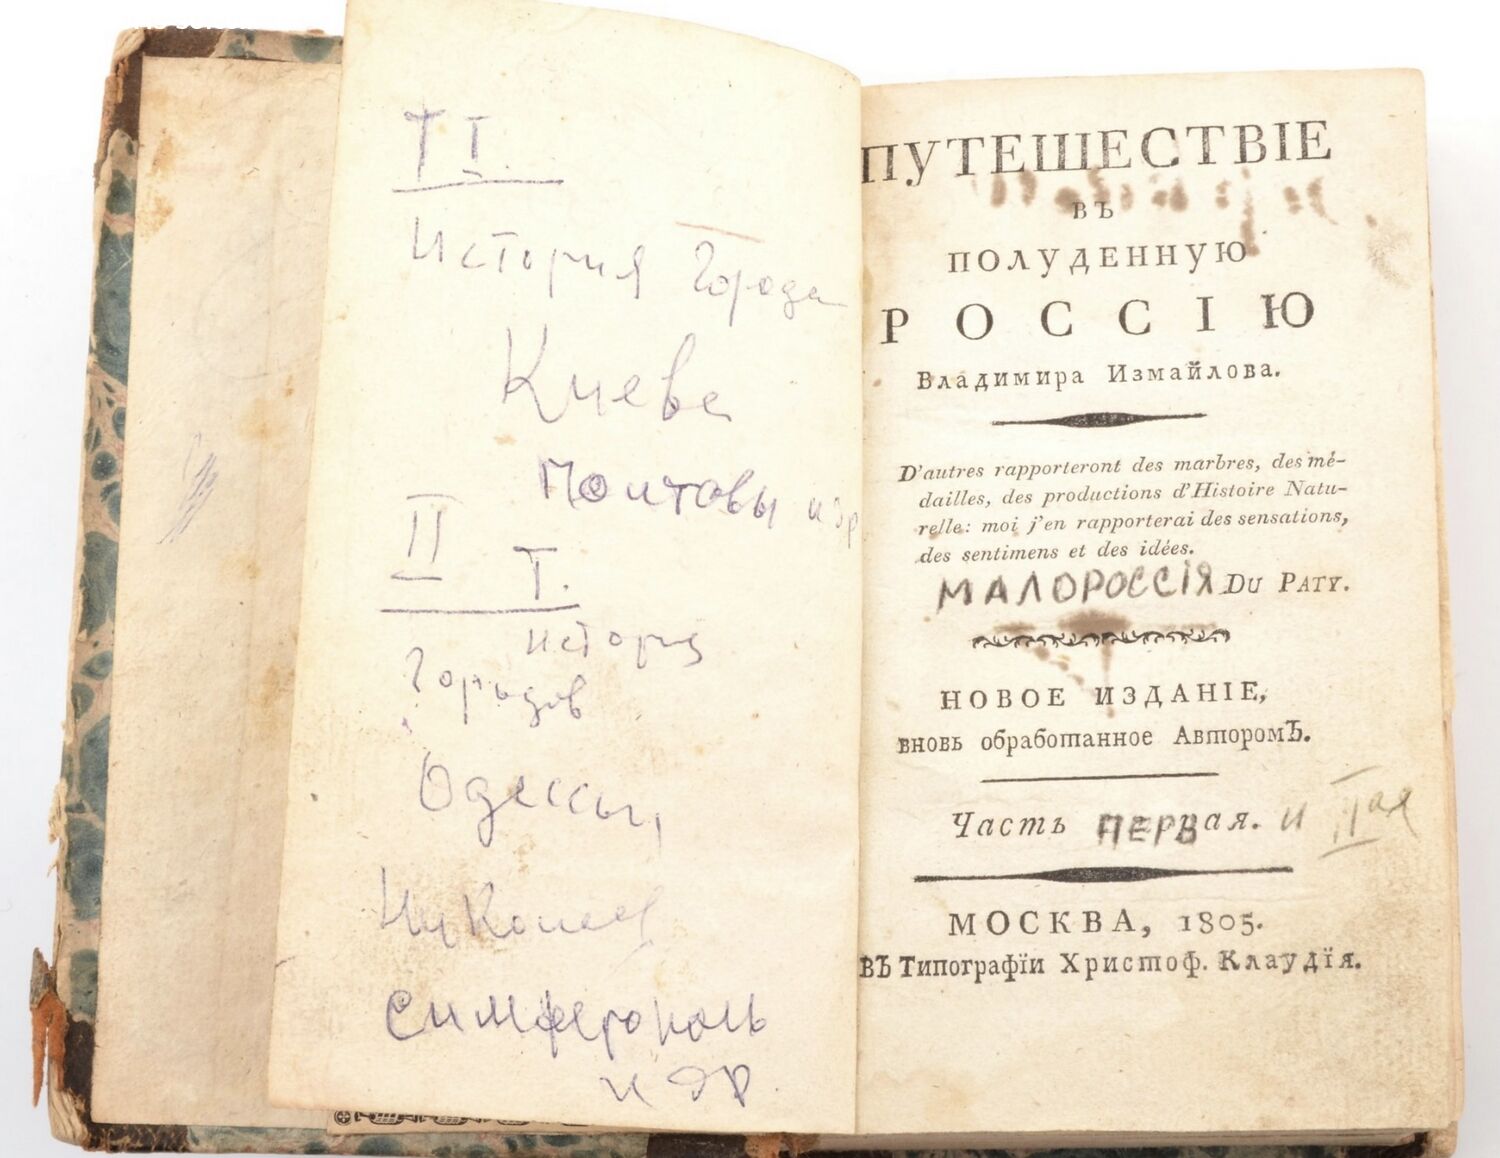 Т I.
История Города
Киева
Полтавы и др
II Т.
история
Городов
Одессы,
Николаев
Симферополь
и др.
ПУТЕШЕСТВІЕ
ВЪ
ПОЛУДЕННУЮ
РОССІЮ
Владимира Измайлова.
D'autres rapporteront des marbres, des mé-
dailles, des productions d'Histoire Natu-
relle: moi j'en rapporterai des sensations,
des sentimens et des idées.
МАЛОРОССІЯ DU PATY.
НОВОЕ ИЗДАНІЕ,
вновь обработанное АвторомЪ.
Часть ПЕРВая. и IIая
МОСКВА, 1805.
ВЪ Типографїи Христоф. Клаудїя.